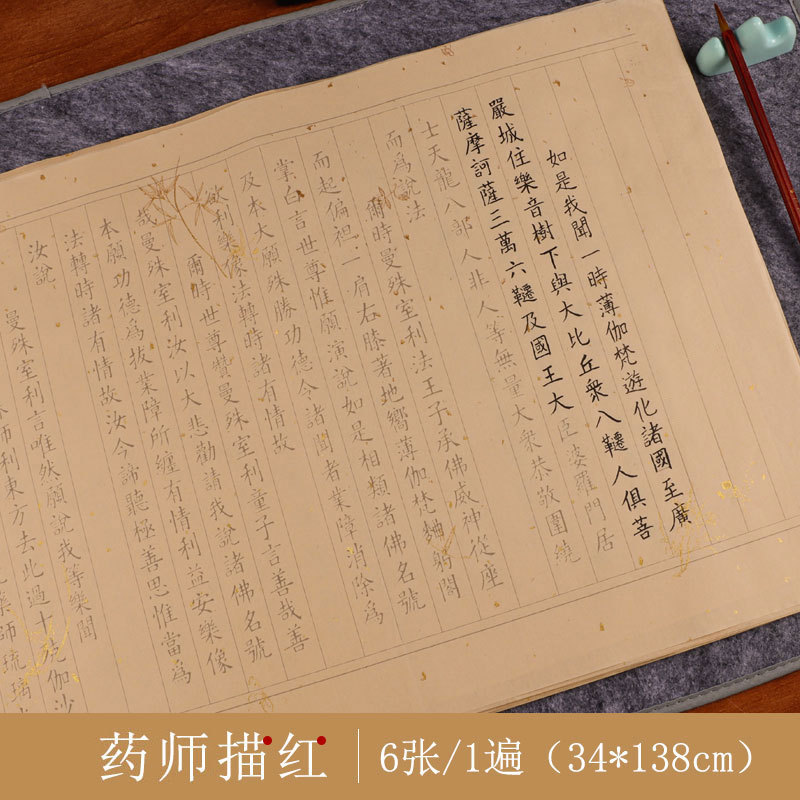 如是我聞一時薄伽梵遊化諸國至廣
嚴城住樂音樹下與大比丘衆八韆人俱菩
薩摩訶薩三萬六韆及國王大臣婆羅門居
士天龍八部人非人等無量大衆恭敬圍繞
而為說法
爾時曼殊室利法王子承佛威神從座
而起偏袒一肩右膝著地嚮薄伽梵麯躬閤
掌白言世尊惟願演說如是相類諸佛名號
及本大願殊勝功德令諸聞者業障消除為
欲利樂像法轉時諸有情故
爾時世尊讚曼殊室利童子言善哉善
哉曼殊室利汝以大悲勸請我說諸佛名號
本願功德為拔業障所纏有情利益安樂像
法轉時諸有情故汝今諦聽極善思惟當為
汝說
曼殊室利言唯然願說我等樂聞
師利東方去此過十伽沙
藥師琉璃
药师描红
6张/1遍（34*138cm）